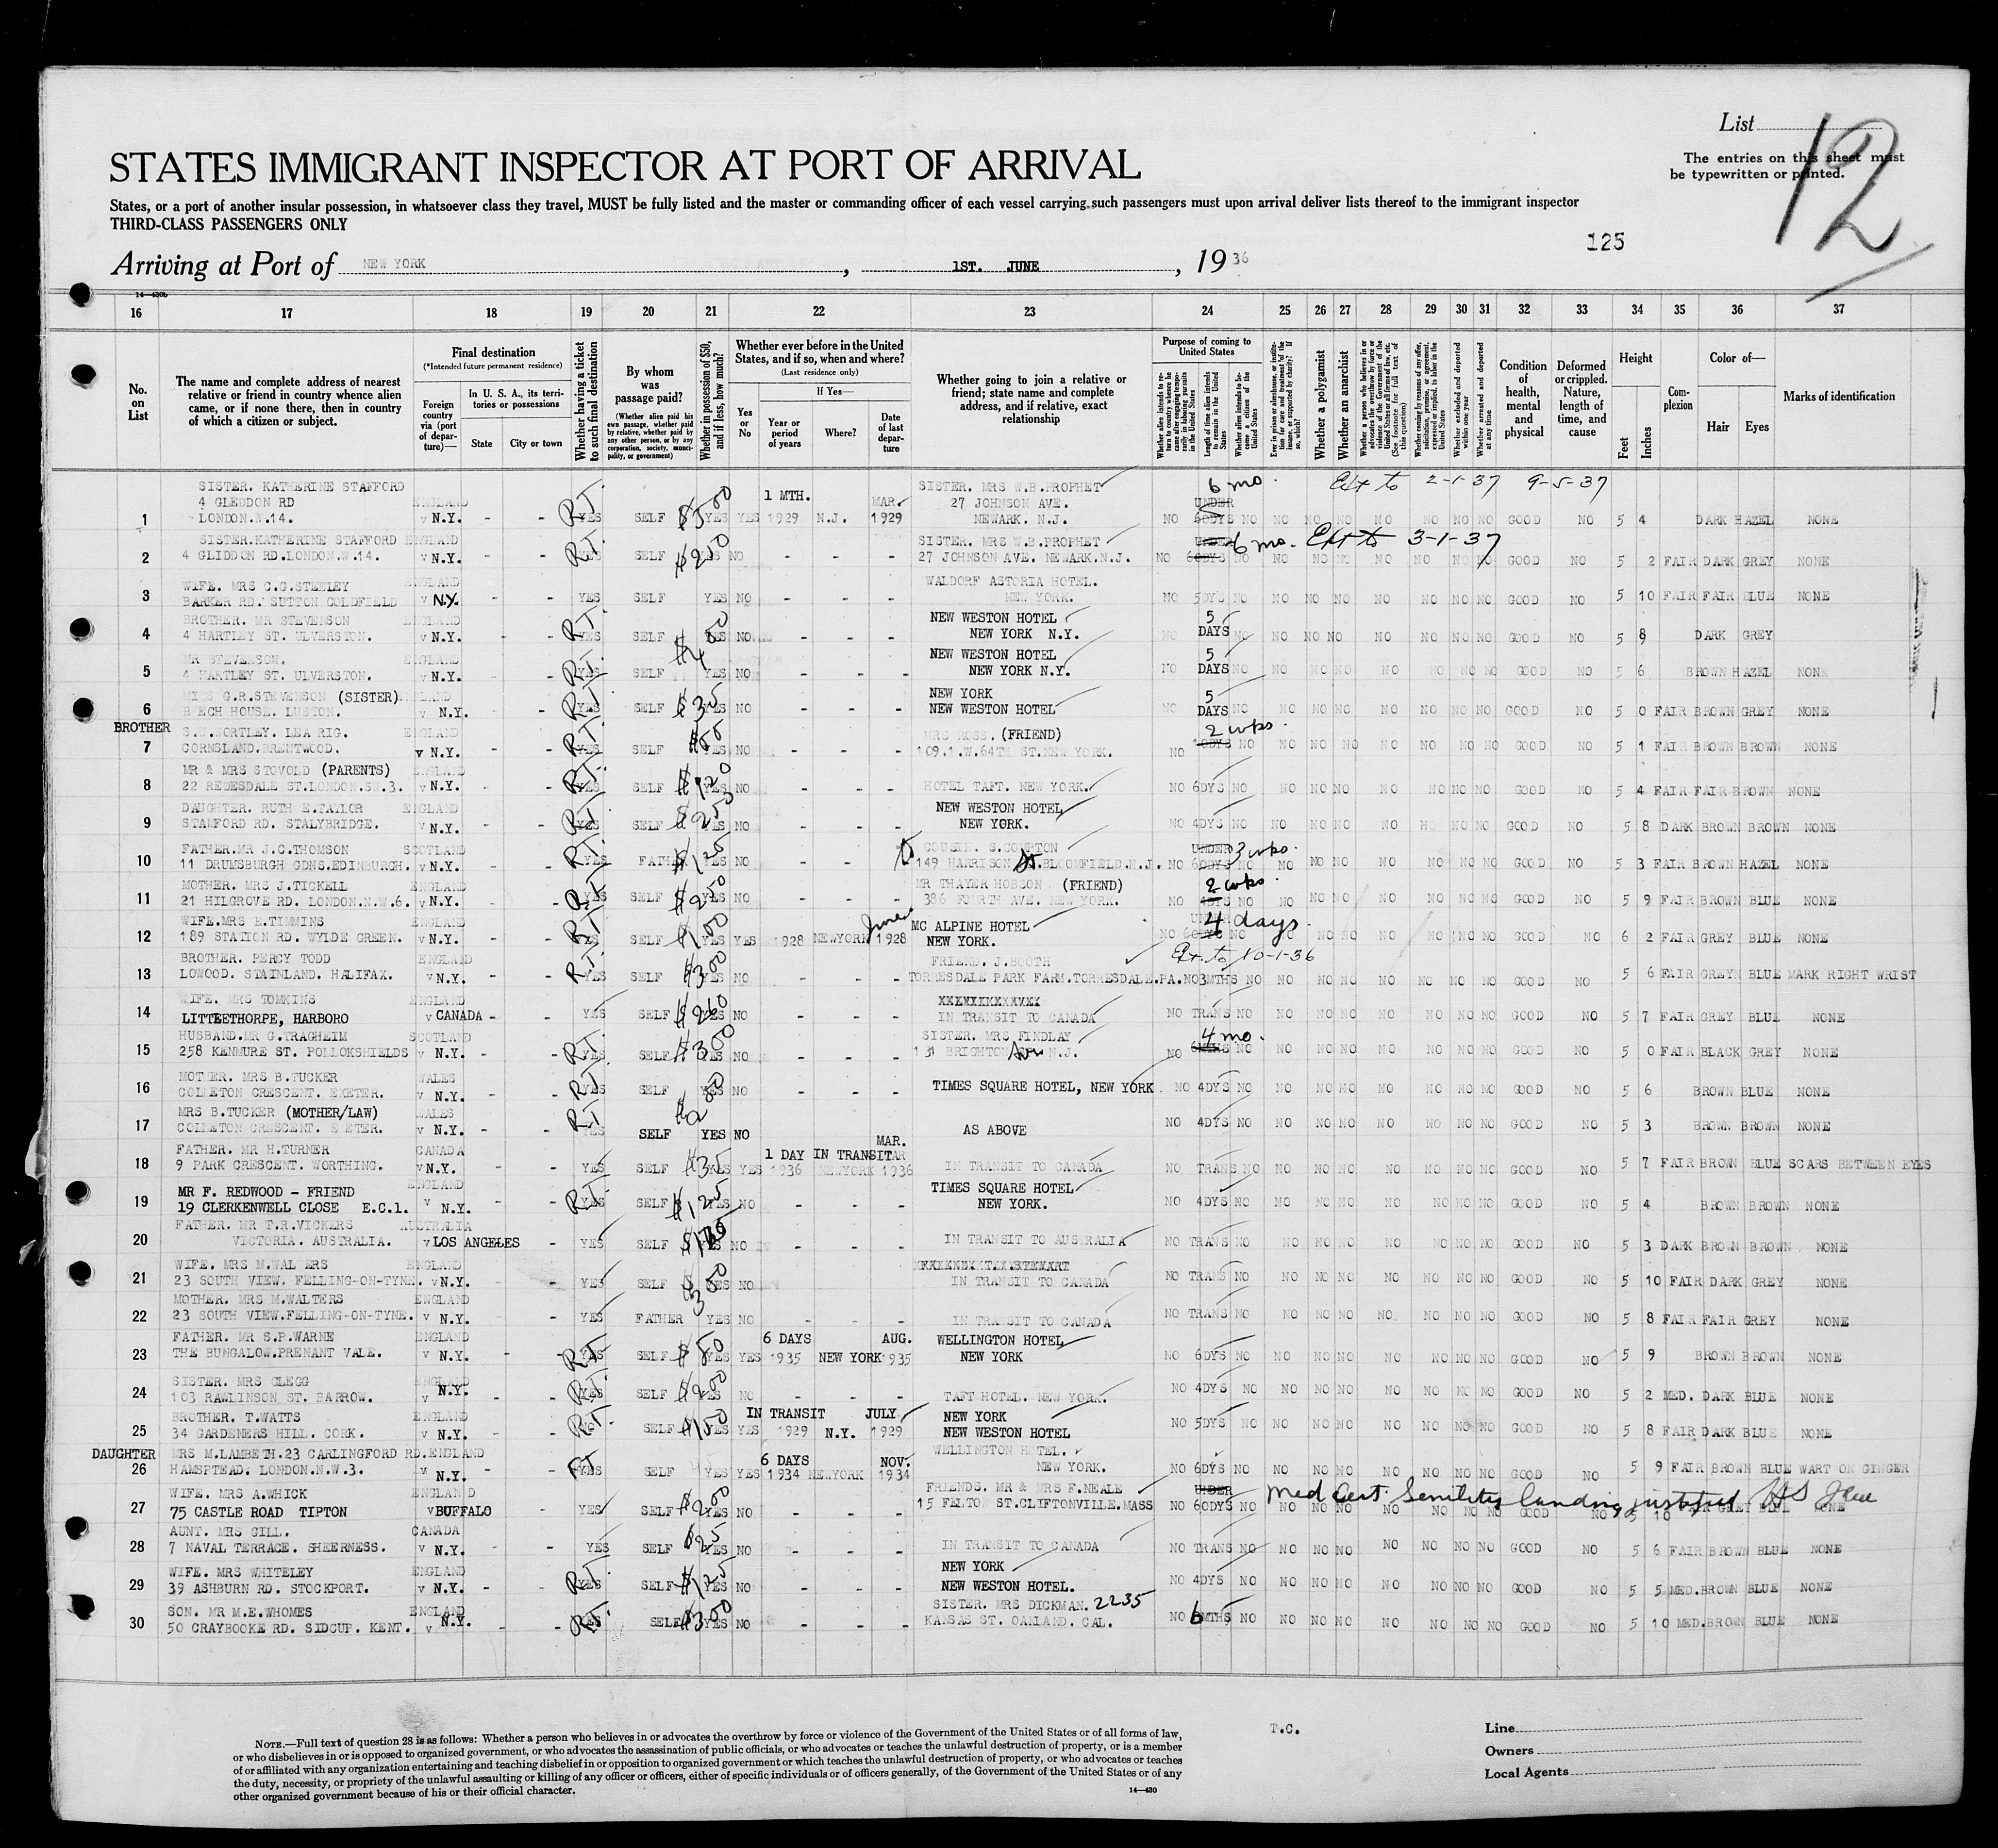 List 12
The entries on this sheet must
be typewritten or printed.
STATES IMMIGRANT INSPECTOR AT PORT OF ARRIVAL
States, or a port of another insular possession, in whatsoever class they travel, MUST be fully listed and the master or commanding officer of each vessel carrying such passengers must upon arrival deliver lists thereof to the immigrant inspector
THIRD-CLASS PASSENGERS ONLY
125
Arriving at Port of NEW YORK, 1ST. JUNE, 19 36
14—430b
16 17 18 19 20 21 22 23 24 25 26 27 28 29 30 31 32 33 34 35 36 37
No. on List
The name and complete address of nearest relative or friend in country whence alien came, or if none there, then in country of which a citizen or subject.
Final destination
(*Intended future permanent residence)
Foreign country via (port of departure)—
In U. S. A., its territories or possessions
State
City or town
Whether having a ticket to such final destination
By whom was passage paid?
(Whether alien paid his own passage, whether paid by relative, whether paid by any other person, or by any corporation, society, municipality, or government)
Whether in possession of $50, and if less, how much?
Whether ever before in the United States, and if so, when and where?
(Last residence only)
Yes or No
If Yes—
Year or period of years
Where?
Date of last departure
Whether going to join a relative or friend; state name and complete address, and if relative, exact relationship
Purpose of coming to United States
Length of time alien intends to remain in the United States
Whether alien intends to become a citizen of the United States
Whether a polygamist
Whether an anarchist
Whether excluded and deported within one year
Whether arrested and deported at any time
Condition of health, mental and physical
Deformed or crippled. Nature, length of time, and cause
Height
Feet
Inches
Complexion
Color of—
Hair
Eyes
Marks of identification
SISTER. KATHERINE STAFFORD SISTER. MRS W.B.PROPHET 6 mo. Ext to 2-1-37 9-5-37
4 GLEDDON RD ENGLAND 1 MTH. MAR. 27 JOHNSON AVE. UNDER
1 LONDON.W.14. v N.Y. - - R.T. YES SELF $500 YES YES 1929 N.J. 1929 NEWARK. N.J. NO 60DYS NO NO NO NO NO NO NO NO GOOD NO 5 4 DARK HAZEL NONE
SISTER.KATHERINE STAFFORD ENGLAND SISTER. MRS W.B.PROPHET UNDER 6 mo. Ext to 3-1-37
2 4 GLIDDON RD.LONDON.W.14. v N.Y. R.T. YES SELF $250 YES NO - - - 27 JOHNSON AVE. NEWARK.N.J. NO 60DYS NO NO NO NO NO NO NO NO GOOD NO 5 2 FAIR DARK GREY NONE
WIFE. MRS C.G.STEELEY ENGLAND WALDORF ASTORIA HOTEL.
3 BARKER RD. SUTTON COLDFIELD v N.Y. YES SELF YES NO - - - NEW YORK. NO 5DYS NO NO NO NO NO NO NO NO GOOD NO 5 10 FAIR FAIR BLUE NONE
BROTHER. MR STEVENSON ENGLAND NEW WESTON HOTEL 5
4 4 HARTLEY ST. ULVERSTON. v N.Y. - - R.T. YES SELF $400 YES NO. - - - NEW YORK N.Y. NO DAYS NO NO NO NO NO NO NO NO GOOD NO 5 8 DARK GREY
MR STEVENSON. ENGLAND NEW WESTON HOTEL 5
5 4 HARTLEY ST. ULVERSTON. v N.Y. - - R.T. YES SELF YES NO - - - NEW YORK N.Y. NO DAYS NO NO NO NO NO NO NO NO GOOD NO 5 6 BROWN HAZEL NONE
MISS G.R.STEVENSON (SISTER) ENGLAND NEW YORK 5
6 BEECH HOUSE. LUSTON. v N.Y. R.T. YES SELF $35 YES NO - - - NEW WESTON HOTEL DAYS NO NO NO NO NO NO NO NO GOOD NO 5 0 FAIR BROWN GREY NONE
BROTHER S.W.WORTLEY. LEA RIG. ENGLAND MRS ROSS. (FRIEND) 2 wks.
7 CORNSLAND.BRENTWOOD. v N.Y. - - R.T. YES SELF YES NO - - - 109.1.W.64TH ST.NEW YORK. NO 10DYS NO NO NO NO NO NO NO NO GOOD NO 5 1 FAIR BROWN BROWN NONE
MR & MRS STOVOLD (PARENTS) ENGLAND
8 22 REDESDALE ST.LONDON.SW.3. v N.Y. R.T. YES SELF $120 YES NO - - - HOTEL TAFT. NEW YORK. NO 6DYS NO NO NO NO NO NO NO NO GOOD NO 5 4 FAIR FAIR BROWN NONE
DAUGHTER. RUTH E.TAYLOR ENGLAND NEW WESTON HOTEL
9 STAMFORD RD. STALYBRIDGE. v N.Y. - - R.T. YES SELF $250 YES NO - - - NEW YORK. NO 4DYS NO NO NO NO NO NO NO NO GOOD NO 5 8 DARK BROWN BROWN NONE
FATHER.MR J.C.THOMSON SCOTLAND COUSIN. S.COMPTON UNDER 3 wks.
10 11 DRUMSBURGH GDNS.EDINBURGH. v N.Y. - - R.T. YES FATHER $125 NO - - 149 HARRISON St. BLOOMFIELD.N.J. NO 60DYS NO NO NO NO NO NO NO NO GOOD NO 5 3 FAIR BROWN HAZEL NONE
MOTHER. MRS J.TICKELL ENGLAND MR THAYER HOBSON (FRIEND) 2 wks.
11 21 HILGROVE RD. LONDON.N.W.6. v N.Y. - - R.T. YES SELF $250 YES NO - - - 386 FOURTH AVE. NEW YORK. NO 4DYS NO NO NO NO NO NO NO NO GOOD NO 5 9 FAIR BROWN BLUE NONE
WIFE.MRS E.TIMMINS ENGLAND June MC ALPINE HOTEL UNDER 4 days.
12 189 STATION RD. WYLDE GREEN. v N.Y. - - R.T. YES SELF $100 YES YES 1928 NEWYORK 1928 NEW YORK. NO 60DYS NO NO NO NO NO NO NO NO GOOD NO 6 2 FAIR GREY BLUE NONE
BROTHER. PERCY TODD ENGLAND FRIEND. J.BOOTH Ex. to 10-1-36
13 LOWOOD. STAINLAND. HALIFAX. v N.Y. R.T. YES SELF $300 YES NO - - - TORRESDALE PARK FARM.TORRESDALE.PA. NO 3MTHS NO NO NO NO NO NO NO NO GOOD NO 5 6 FAIR GREYN BLUE MARK RIGHT WRIST
WIFE. MRS TOMKINS ENGLAND
14 LITTLETHORPE, HARBORO v CANADA - - YES SELF $260 YES NO - - - IN TRANSIT TO CANADA NO TRANS NO NO NO NO NO NO NO NO GOOD NO 5 7 FAIR GREY BLUE NONE
HUSBAND.MR G.TRAGHEIM SCOTLAND SISTER. MRS FINDLAY 4 mo.
15 258 KENMURE ST. POLLOKSHIELDS v N.Y. - - R.T. YES SELF $300 YES NO - - - 131 BRIGHTON Ave N.J. NO 6MTHS NO NO NO NO NO NO NO NO GOOD NO 5 0 FAIR BLACK GREY NONE
MOTHER. MRS B.TUCKER WALES
16 COLLETON CRESCENT. EXETER. v N.Y. - - R.T. YES SELF $200 YES NO - - - TIMES SQUARE HOTEL, NEW YORK NO 4DYS NO NO NO NO NO NO NO NO GOOD NO 5 6 BROWN BLUE NONE
MRS B.TUCKER (MOTHER/LAW) WALES
17 COLLETON CRESCENT. EXETER. v N.Y. - - R.T. YES SELF YES NO AS ABOVE NO 4DYS NO NO NO NO NO NO NO NO GOOD NO 5 3 BROWN BROWN NONE
FATHER. MR H.TURNER CANADA 1 DAY IN TRANSIT MAR.
18 9 PARK CRESCENT. WORTHING. v N.Y. - - YES SELF $35 YES YES 1936 NEWYORK 1936 IN TRANSIT TO CANADA NO TRANS NO NO NO NO NO NO NO NO GOOD NO 5 7 FAIR BROWN BLUE SCARS BETWEEN EYES
MR F. REDWOOD - FRIEND ENGLAND TIMES SQUARE HOTEL
19 19 CLERKENWELL CLOSE E.C.1. v N.Y. R.T. YES SELF $125 YES NO - - - NEW YORK. NO 4DYS NO NO NO NO NO NO NO NO GOOD NO 5 4 BROWN BROWN NONE
FATHER. MR T.R.VICKERS AUSTRALIA
20 VICTORIA. AUSTRALIA. v LOS ANGELES - YES SELF YES NO - - - IN TRANSIT TO AUSTRALIA NO TRANS NO NO NO NO NO NO NO NO GOOD NO 5 3 DARK BROWN BROWN NONE
WIFE. MRS M.WALTERS ENGLAND
21 23 SOUTH VIEW. FELLING-ON-TYNE. v N.Y. - YES SELF $300 YES NO - - - IN TRANSIT TO CANADA NO TRANS NO NO NO NO NO NO NO NO GOOD NO 5 10 FAIR DARK GREY NONE
MOTHER. MRS M.WALTERS ENGLAND
22 23 SOUTH VIEW.FELLING-ON-TYNE. v N.Y. - YES FATHER YES NO - - - IN TRANSIT TO CANADA NO TRANS NO NO NO NO NO NO NO NO GOOD NO 5 8 FAIR FAIR GREY NONE
FATHER. MR S.P.WARNE ENGLAND 6 DAYS AUG. WELLINGTON HOTEL
23 THE BUNGALOW.PRENANT VALE. v N.Y. - - R.T. YES SELF $50 YES YES 1935 NEW YORK 1935 NEW YORK NO 6DYS NO NO NO NO NO NO NO NO GOOD NO 5 9 BROWN BROWN NONE
SISTER. MRS CLEGG ENGLAND
24 103 RAWLINSON ST. BARROW. v N.Y. - - R.T. YES SELF $200 YES NO - - - TAFT HOTEL. NEW YORK. NO 4DYS NO NO NO NO NO NO NO NO GOOD NO 5 2 MED. DARK BLUE NONE
BROTHER. T.WATTS ENGLAND IN TRANSIT JULY NEW YORK
25 34 GARDENERS HILL. CORK. v N.Y. - - R.T. SELF $150 YES YES 1929 N.Y. 1929 NEW WESTON HOTEL NO 5DYS NO NO NO NO NO NO NO NO GOOD NO 5 8 FAIR DARK BLUE NONE
DAUGHTER MRS M.LAMBETH.23 CARLINGFORD RD.ENGLAND 6 DAYS NOV. WELLINGTON HOTEL.
26 HAMSPTEAD. LONDON.N.W.3. v N.Y. - - R.T. YES SELF YES YES 1934 NEWYORK 1934 NEW YORK. NO 6DYS NO NO NO NO NO NO NO NO GOOD NO 5 9 FAIR BROWN BLUE WART ON GINGER
WIFE. MRS A.WHICK ENGLAND FRIENDS. MR & MRS F.NEALE UNDER Med Cert. Senility landing justified
27 75 CASTLE ROAD TIPTON v BUFFALO YES SELF $200 YES NO - - - 15 FELTON ST.CLIFTONVILLE.MASS NO 60DYS NO NO NO NO NO NO NO NO GOOD NO 5 10 GREY BLUE NONE
AUNT. MRS GILL. CANADA
28 7 NAVAL TERRACE. SHEERNESS. v N.Y. - - YES SELF $25 YES NO - - - IN TRANSIT TO CANADA NO TRANS NO NO NO NO NO NO NO NO GOOD NO 5 6 FAIR BROWN BLUE NONE
WIFE. MRS WHITELEY ENGLAND NEW YORK
29 39 ASHBURN RD. STOCKPORT. v N.Y. - - R.T. YES SELF $125 YES NO - - - NEW WESTON HOTEL. NO 4DYS NO NO NO NO NO NO NO NO GOOD NO 5 5 MED. BROWN BLUE NONE
SON. MR M.E.WHOMES ENGLAND SISTER. MRS DICKMAN. 2235
30 50 CRAYBOOKE RD. SIDCUP. KENT. v N.Y. - - R.T. YES SELF $300 YES NO - - - KANSAS ST. OAKLAND. CAL. NO 6 MTHS NO NO NO NO NO NO NO NO GOOD NO 5 10 MED. BROWN BLUE NONE
NOTE.—Full text of question 28 is as follows: Whether a person who believes in or advocates the overthrow by force or violence of the Government of the United States or of all forms of law,
or who disbelieves in or is opposed to organized government, or who advocates the assassination of public officials, or who advocates or teaches the unlawful destruction of property, or is a member
of or affiliated with any organization entertaining and teaching disbelief in or opposition to organized government or which teaches the unlawful destruction of property, or who advocates or teaches
the duty, necessity, or propriety of the unlawful assaulting or killing of any officer or officers, either of specific individuals or of officers generally, of the Government of the United States or of any
other organized government because of his or their official character.
14—430
T.C.
Line
Owners
Local Agents